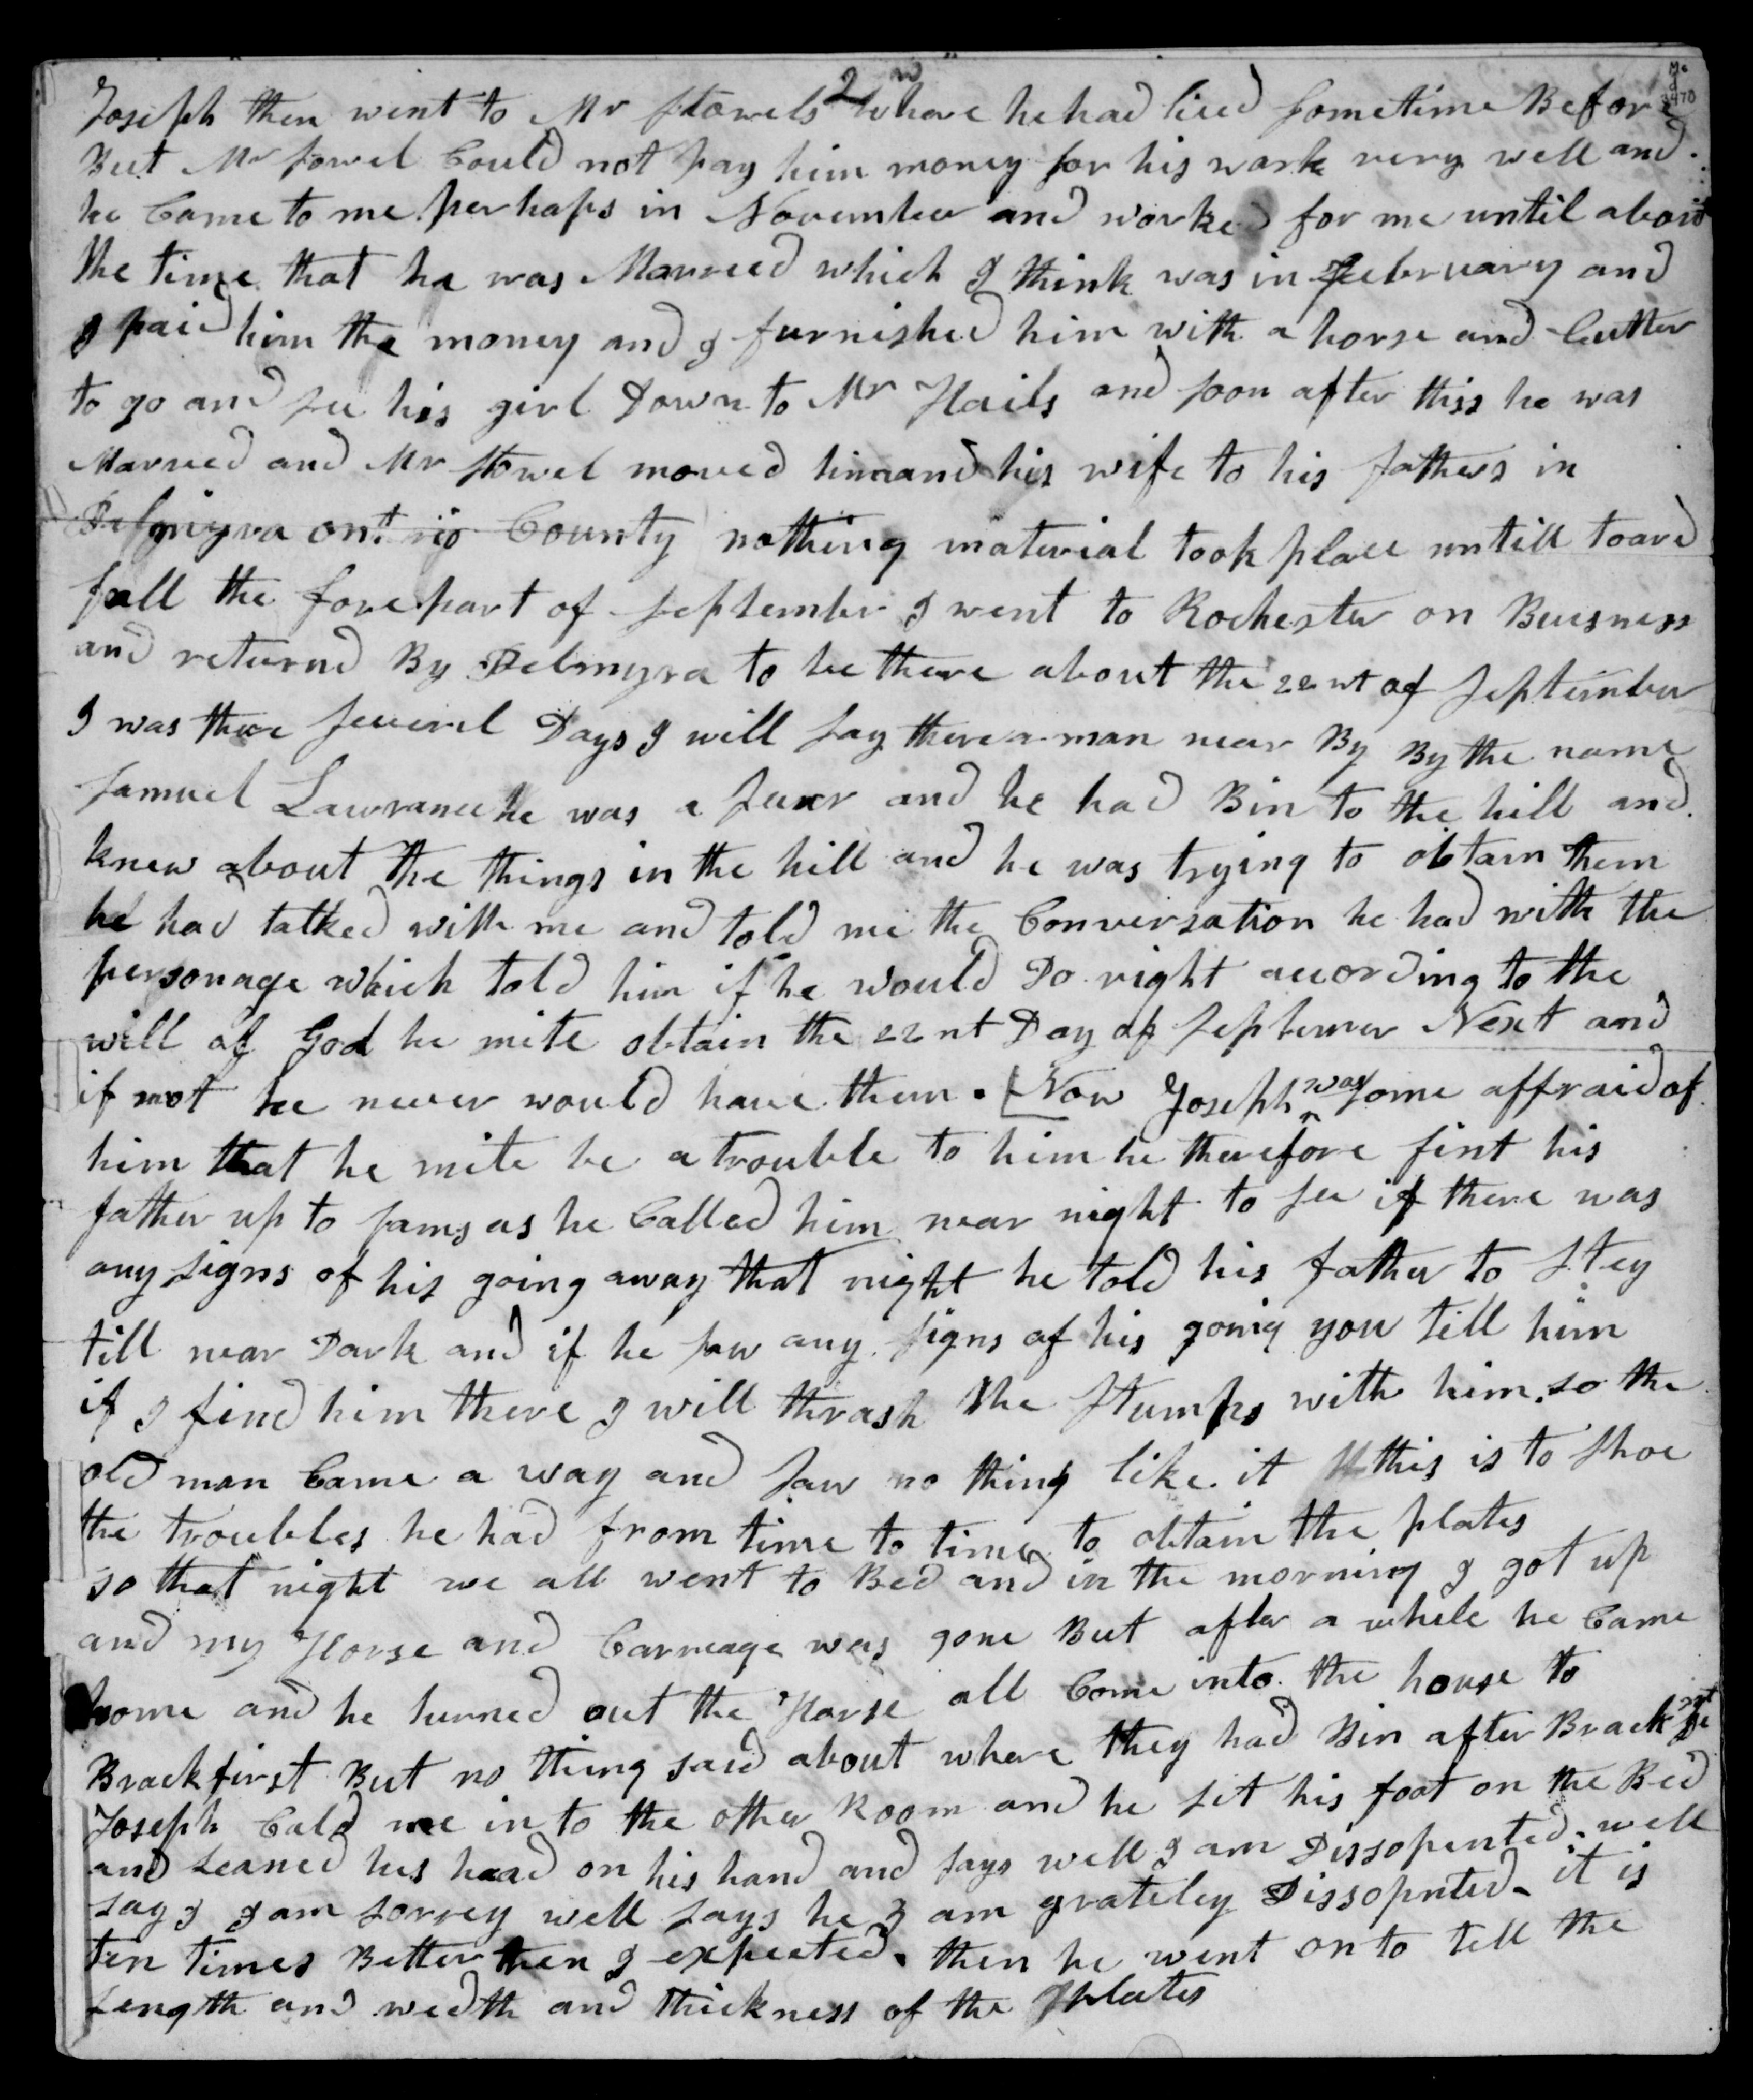 2 w
Ms
3470
Joseph then went to Mr Stowels where he had lived sometime Before
But Mr Stowel Could not pay him money for his work very well and
he Came to me perhaps in November and worked for me until about
the time that he was Married which I think was in February and
I paid him the money and I furnished him with a horse and Cutter
to go and see his girl Down to Mr Hails and soon after this he was
Married and Mr Stowel moved him and his wife to his fathers in
Pelmyra ontario County nothing material took place untill toard
fall the forepart of September I went to Rochester on Buisness
and returnd By Pelmyra to be there about the 22nt of September
I was there several Days I will say there a man near By By the name
Samuel Lawrance he was a Seear and he had Bin to the hill and
knew about the things in the hill and he was trying to obtain them
he had talked with me and told me the Conversation he had with the
personage which told him if he would Do right according to the
will of God he mite obtain the 22nt Day of Septemer Next and
if not he never would have them. [Now Joseph was some affraid of
him that he mite be a trouble to him he therefore sint his
father up to Sams as he Called him near night to see if there was
any signs of his going away that night he told his father to stey
till near Dark and if he saw any signs of his going you till him
if I find him there I will thrash the stumps with him. so the
old man Came a way and saw no thing like it this is to shoe
the troubles he had from time to time to obtain the plates
so that night we all went to Bed and in the morning I got up
and my Horse and Carreage was gone But after a while he Came
home and he turned out the Horse all Come into the house to
Brackfirst But no thing said about where they had Bin after Brackfirst
Joseph Cald me in to the other Room and he set his foot on the Bed
and leaned his head on his hand and says well I am Dissopented. well
say I I am sorrey well says he I am grateley Dissopnted. it is
ten times Better then I expected. then he went on to tell the
length and width and thickness of the plates